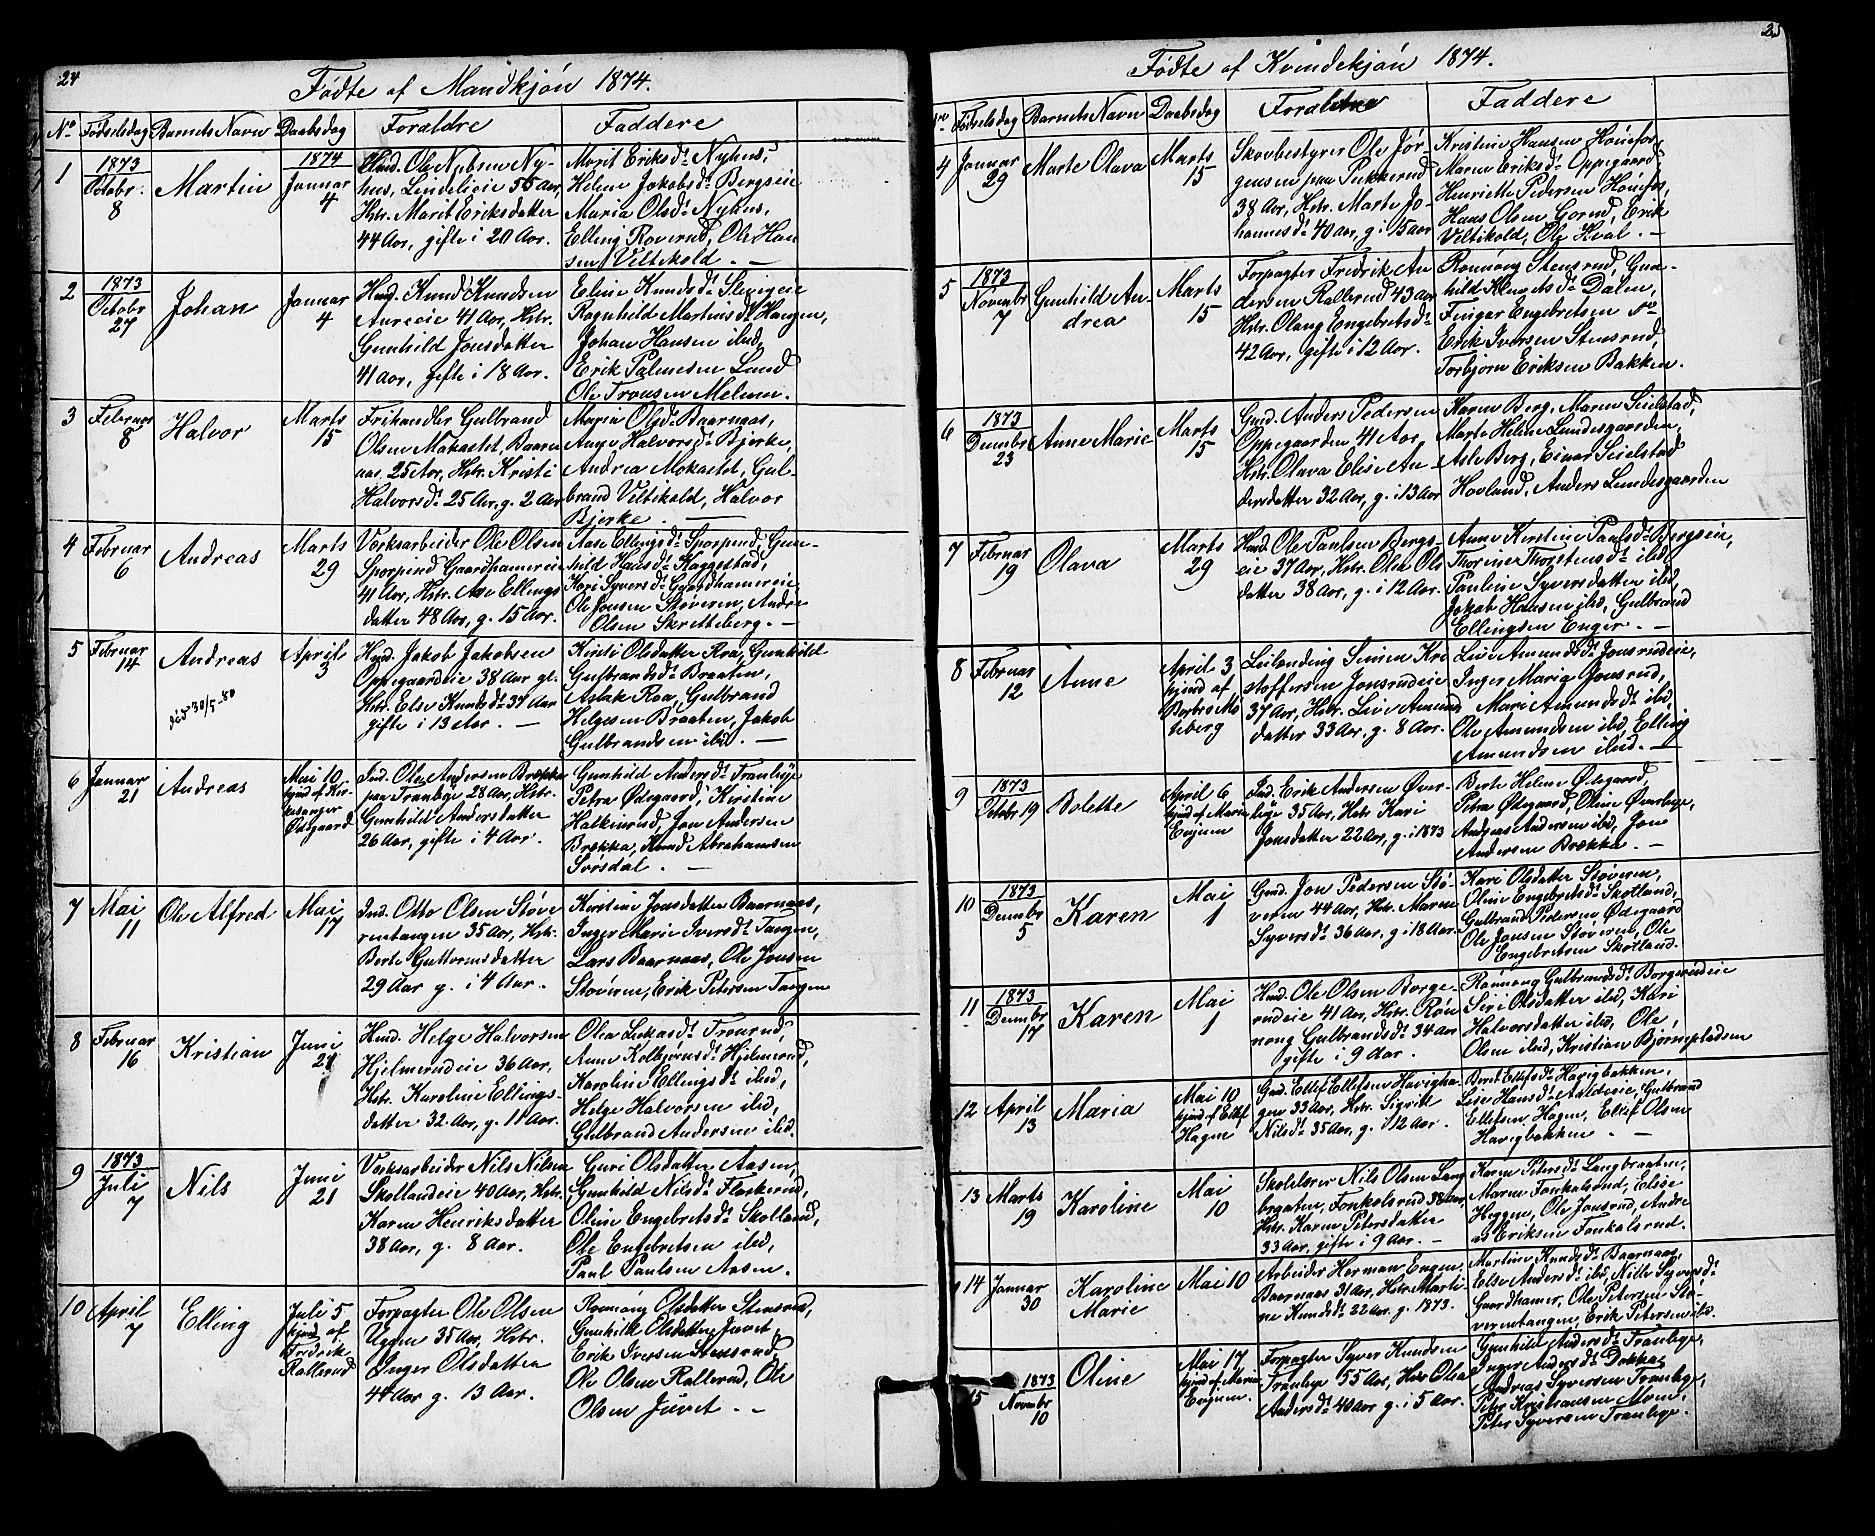 24
Fødte af Mandkjøn 1874.
No Fødselsdag Barnets Navn Daabsdag Foraldre Faddere
1
1873
Octobr.
8
Martin
1874
Januar
4
Hmd. Ole Nybsen Ny-
hus, Lundeleie 55 Aar,
Hstr. Marit Eriksdatter
44 Aar, gifte i 20 Aar.
Marit Eriksdr. Nyhus,
Helene Jakobsdr. Bergseie
Maria Olsdr. Nyhus,
Elling Roverud, Ole Han
sen Veltikold. —
2
1873
Octobr
27
Johan
Januar
4
Hmd. Knud Knudsen
Aureeie 41 Aar, Hstr.
Gunhild Jonsdatter
41 Aar, gifte i 18 Aar.
Eline Knudsdr.
Ragnhild Martinsdr. Haugen,
Johan Hansen ibid,
Erik Palmesen Lund
Ole Tronsen Melum.
3
Februar
8
Halvor
Marts
15
Frihandler Gulbrand
Olsen Mokastet, Baarn
aas. 25 Aar, Hstr. Kristi
Halvorsdr. 25 Aar, g. 2 Aar
Maria Olsd. Baarnaas,
Aage Halvorsdr. Bjerke,
Andrea Mokastet, Gul-
brand Veltikold, Halvor
Bjerke. —
4
Februar
6
Andreas
Marts
29
Værksarbeider Ole Olsen
Sporpind Gaardhamereie
41 Aar, Hstr. Aase Ellings
datter 48 Aar, g. 15 Aar.
Aase Ellingsdr. Sporpind, Gun-
hild Hansdr. Kaggestad,
Kari Syversdr. Gaardhamereie
Ole Jonsen Støveren, Andre
Olsen Skretteberg. —
5
Februar
14
Andreas
død 30/5-80
April
3
Hmd. Jakob Jakobsen
Oppegaardeie 38 Aar gl.
Hstr. Else Knudsdr. 37 Aar
gifte i 13 Aar. —
Kirsti Olsdatter Roa, Gunhild
Gulbrandsdr. Braaten,
Aslak Roa, Gulbrand
Helgesen Braaten, Jakob
Gulbrandsen ibid. —
6
Januar
21
Andreas
Mai 10
hjmd af Kir-
kesanger
Ødegaard
Ind. Ole Andersen Brækka
paa Tranbye 28 Aar, Hstr.
Gunhild Andersdatter
26 Aar, gifte i 4 Aar.
Gunhild Andersdr. Tranbye
Petra Ødegaard, Kirstine
Halkinrud, Jon Andersen
Brækka, Knud Abrahamsen
Sørsdal. —
7
Mai
11
Ole Alfred
Mai
17
Ind. Otto Olsen Støve
rentangen 35 Aar, Hstr.
Berte Guttormsdatter
29 Aar g. i 4 Aar.
Kirstine Jonsdatter Baarnaas,
Inger Marie Iversdr. Tangen,
Lars Baarnaas, Ole Jonsen
Støveren, Erik Petersen Tangen
8
Februar
16
Kristian
Juni
21
Hmd. Helge Halvorsen
Hjelmerudeie 36 Aar,
Hstr. Karoline Ellings-
datter 32 Aar, g. 11 Aar.
Olea Lukasdr. Tronrud,
Anne Kolbjørnsdr. Hjelmerud,
Karoline Ellingsdr. ibid,
Helge Halvorsen ibid,
Gulbrand Andersen ibid.
9
1873
Juli
7
Nils
Juni
21
Værksarbeider Nils Nilsen
Skollandeie 40 Aar, Hstr.
Karen Henriksdatter
38 Aar, g. 8 Aar.
Guri Olsdatter Aasen,
Gunhild Nilsdr. Flaskerud,
Oline Engebretsdr. Skolland,
Ole Engebretsen ibid,
Paul Paulsen Aasen.
10
April
7
Elling
Juli 5
hjmd af
Fredrik
Rallerud
Forpagter Ole Olsen
Ugen 35 Aar, Hstr.
Inger Olsdatter
44 Aar g. 13 Aar.
Rønnaug Olsdatter Stensrud,
Gunhild Olsdatter Juvet,
Erik Iversen Stensrud,
Ole Olsen Rallerud, Ole
Olsen Juvet. —
25
Fødte af Kvindekjøn 1874.
No Fødselsdag Barnets Navn Daabsdag Foraldre Faddere
4
Januar
29
Marte Olava
Marts
15
Skovbestyrer Ole Jør-
gensen paa Pukkerud
38 Aar, Hstr. Marte Jo-
hannesdr. 40 Aar, g. i 15 Aar
Kristine Hansen Hønefos,
Maren Eriksdr. Oppegaard
Henriette Pedersen Hønefos,
Hans Olsen Gorud, Erik
Veltikold, Ole Hval. —
5
1873
Novembr
7
Gunhild An-
drea
Marts
15
Forpagter Fredrik An
dersen Rallerud 43 Aar
Hstr. Olaug Engebretsdr.
42 Aar, gifte i 12 Aar.
Rønnaug Stensrud, Gun-
hild Knutsdr. Dalen,
Finger Engebretsen So
Erik Iversen Stensrud,
Torbjørn Eriksen Bakken.
6
1873
Decembr
23
Anne Marie
Marts
15
Gmd. Anders Pedersen
Oppegaarden 41 Aar,
Hstr. Olava Elise An-
dersdatter 32 Aar, g. i 13 Aar
Karen Berg, Maren Seielstad,
Marte Helene Lundesgaarden,
Asle Berg, Einar Seielstad
Hovland, Anders Lundesgaarden
7
Februar
19
Olava
Marts
29
Hmd. Ole Paulsen Bergs-
eie 37 Aar, Hstr. Olea Ols
datter 38 Aar, g. i 12 Aar.
Anne Kirstine Paulsdr. Bergseie,
Thorine Thorstensdr. ibid,
Pauline Syversdatter ibid,
Jakob Hansen ibid, Gulbrand
Ellingsen Enger. —
8
Februar
12
Anne
April 3
hjmd af
Berte Mo
seberg
Leilending Simen Kri
stoffersen Jonsrudeie
37 Aar, Hstr. Live Amund
datter 33 Aar, g. 8 Aar.
Live Amundsdr. Jonsrudeie,
Inger Maria Jonsrud,
Mari Amundsdr. ibid,
Ole Amundsen ibid, Elling
Amundsen ibid. —
9
1873
Octobr 19
Bolette
April 6
hjmd af Maria
Engum
Ind. Erik Andersen Øver-
lige 35 Aar, Hstr Kari
Jonsdatter 22 Aar, g. i 1873
Berte Helene Ødegaard,
Petra Ødegaard, Oline Øverlige,
Andreas Andersen ibid, Jon
Andersen Brækka. —
10
1873
Decembr
5
Karen
Mai
1
Gmd. Jon Pedersen Stø-
veren 44 Aar, Hstr. Maren
Syversdr. 36 Aar, g. i 18 Aar.
Kari Olsdatter Støveren,
Oline Engebretsdr. Skotland,
Gulbrand Pedersen Ødegaard
Ole Jonsen Støveren, Ole
Engebretsen Skotland.
11
1873
Decembr
17
Karen
Mai
1
Hmd. Ole Olsen Borge-
rudeie 41 Aar, Hstr. Røn
naug Gulbrandsdr. 34 Aar
gifte i 9 Aar.
Rønnaug Gulbrandsdr. Borgerudeie
Siri Olsdatter ibid, Kari
Halvorsdatter ibid, Ole,
Olsen ibid, Kristian Bjørnepladsen
12
April
13
Maria
Mai 10
hjmd af Ellef
Hagen
Gmd. Ellef Ellefsen Havigha-
gen 33 Aar, Hstr. Sigrik
Nilsdr. 35 Aar, g. i 12 Aar.
Berit Ellefsdr. Havigbakken,
Lise Hansdr. Aaldeeie, Gulbrand
Ellefsen Hagen, Ellef Olsen
Havigbakken. —
13
Marts
19
Karoline
Mai
10
Skolelærer Nils Olsen Lang
braaten, Fonkalsrud 38 Aar,
Hstr. Karen Petersdatter
33 Aar, gifte i 9 Aar. —
Karen Petersdr. Langbraaten,
Maren Fonkalsrud, Elise
Heggen, Ole Jonsrud, Andre
as Eriksen Fonkalsrud.
14
Januar
30
Karoline
Marie
Mai 10
Arbeider Herman Engen
Baarnaas 31 Aar, Hstr. Marti-
ne Knudsdr. 22 Aar, g. 1873.
Martine Knudsdr. Baarnaas,
Else Andersdr. ibid, Nille Syversdr.
Gaardhamer, Ole Petersen Stø-
verentangen, Erik Petersen ibid.
15
1873
Novembr
10
Oline
Mai 17
hjmd af Maria
Engum
Forpagter Syver Knudsen
Tranbye 55 Aar, Hstr Olea
Andersdr. 40 Aar, g. i 5 Aar.
Gunhild Andersdr. Tranbye,
Inger Andersdr. Dokka,
Andreas Syversen Tranbye,
Peter Kristiansen Moen,
Peter Syversen Tranbye.